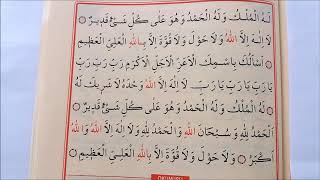 لَهُ الْمُلْكُ وَلَهُ الْحَمْدُ وَهُوَ عَلَى كُلِّ شَيْءٍ قَدِيرٌ
لَا إِلٰهَ إِلَّا اللهُ وَلَا حَوْلَ وَلَا قُوَّةَ إِلَّا بِاللهِ الْعَلِيِّ الْعَظِيمِ
أَسْأَلُكَ بِاسْمِكَ الْأَعَزِّ الْأَجَلِّ الْأَكْرَمِ رَبِّ رَبِّ
يَا رَبِّ يَا رَبِّ يَا رَبِّ لَا إِلٰهَ إِلَّا اللهُ وَحْدَهُ لَا شَرِيكَ لَهُ
لَهُ الْمُلْكُ وَلَهُ الْحَمْدُ وَهُوَ عَلَى كُلِّ شَيْءٍ قَدِيرٌ
اَلْحَمْدُ لِلّٰهِ وَسُبْحَانَ اللهِ وَالْحَمْدُ لِلّٰهِ وَلَا إِلٰهَ إِلَّا اللهُ وَاللهُ
أَكْبَرُ وَلَا حَوْلَ وَلَا قُوَّةَ إِلَّا بِاللهِ الْعَلِيِّ الْعَظِيمِ